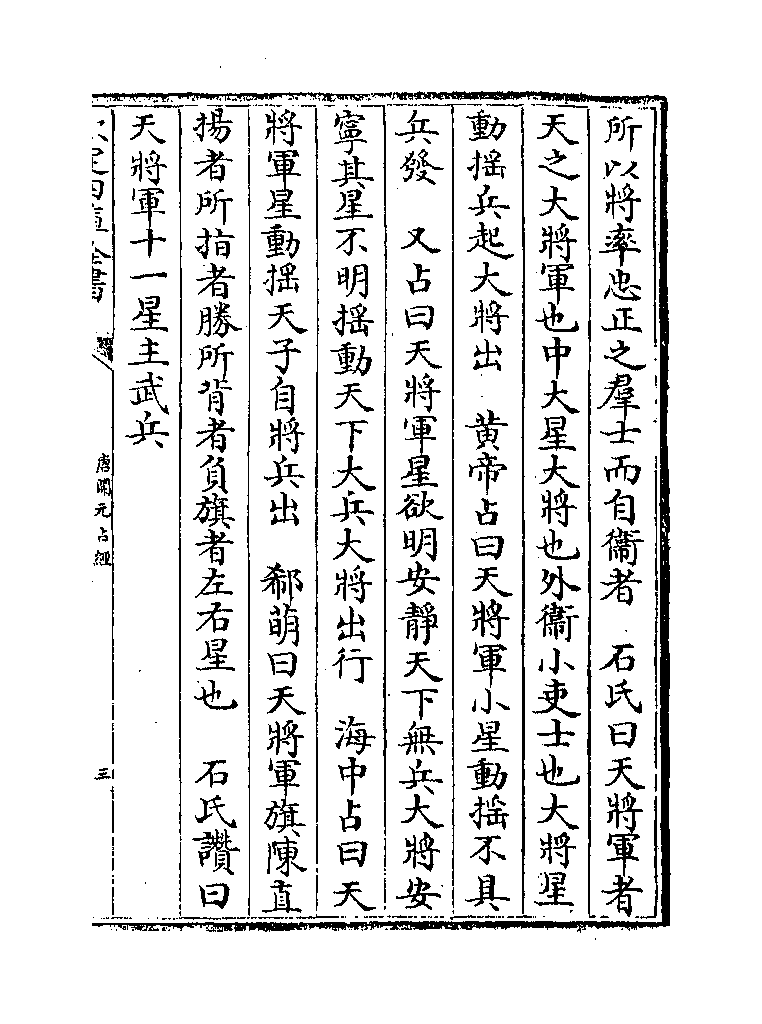 所以將率忠正之羣士而自衞者　石氏曰天將軍者
天之大將軍也中大星大將也外衞小吏士也大將星
動揺兵起大將出　黄帝占曰天將軍小星動揺不具
兵發　又占曰天將軍星欲明安靜天下無兵大將安
寧其星不明揺動天下大兵大將出行　海中占曰天
將軍星動揺天子自將兵出　郗萌曰天將軍旗陳直
揚者所指者勝所背者負旗者左右星也　石氏讚曰
天將軍十一星主武兵
欽定四庫全書
唐開元占經
三